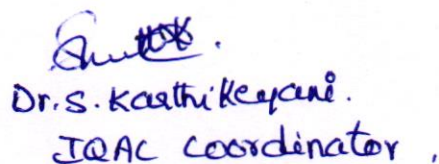 Dr. S. Karthikeyani.
IQAC Coordinator.